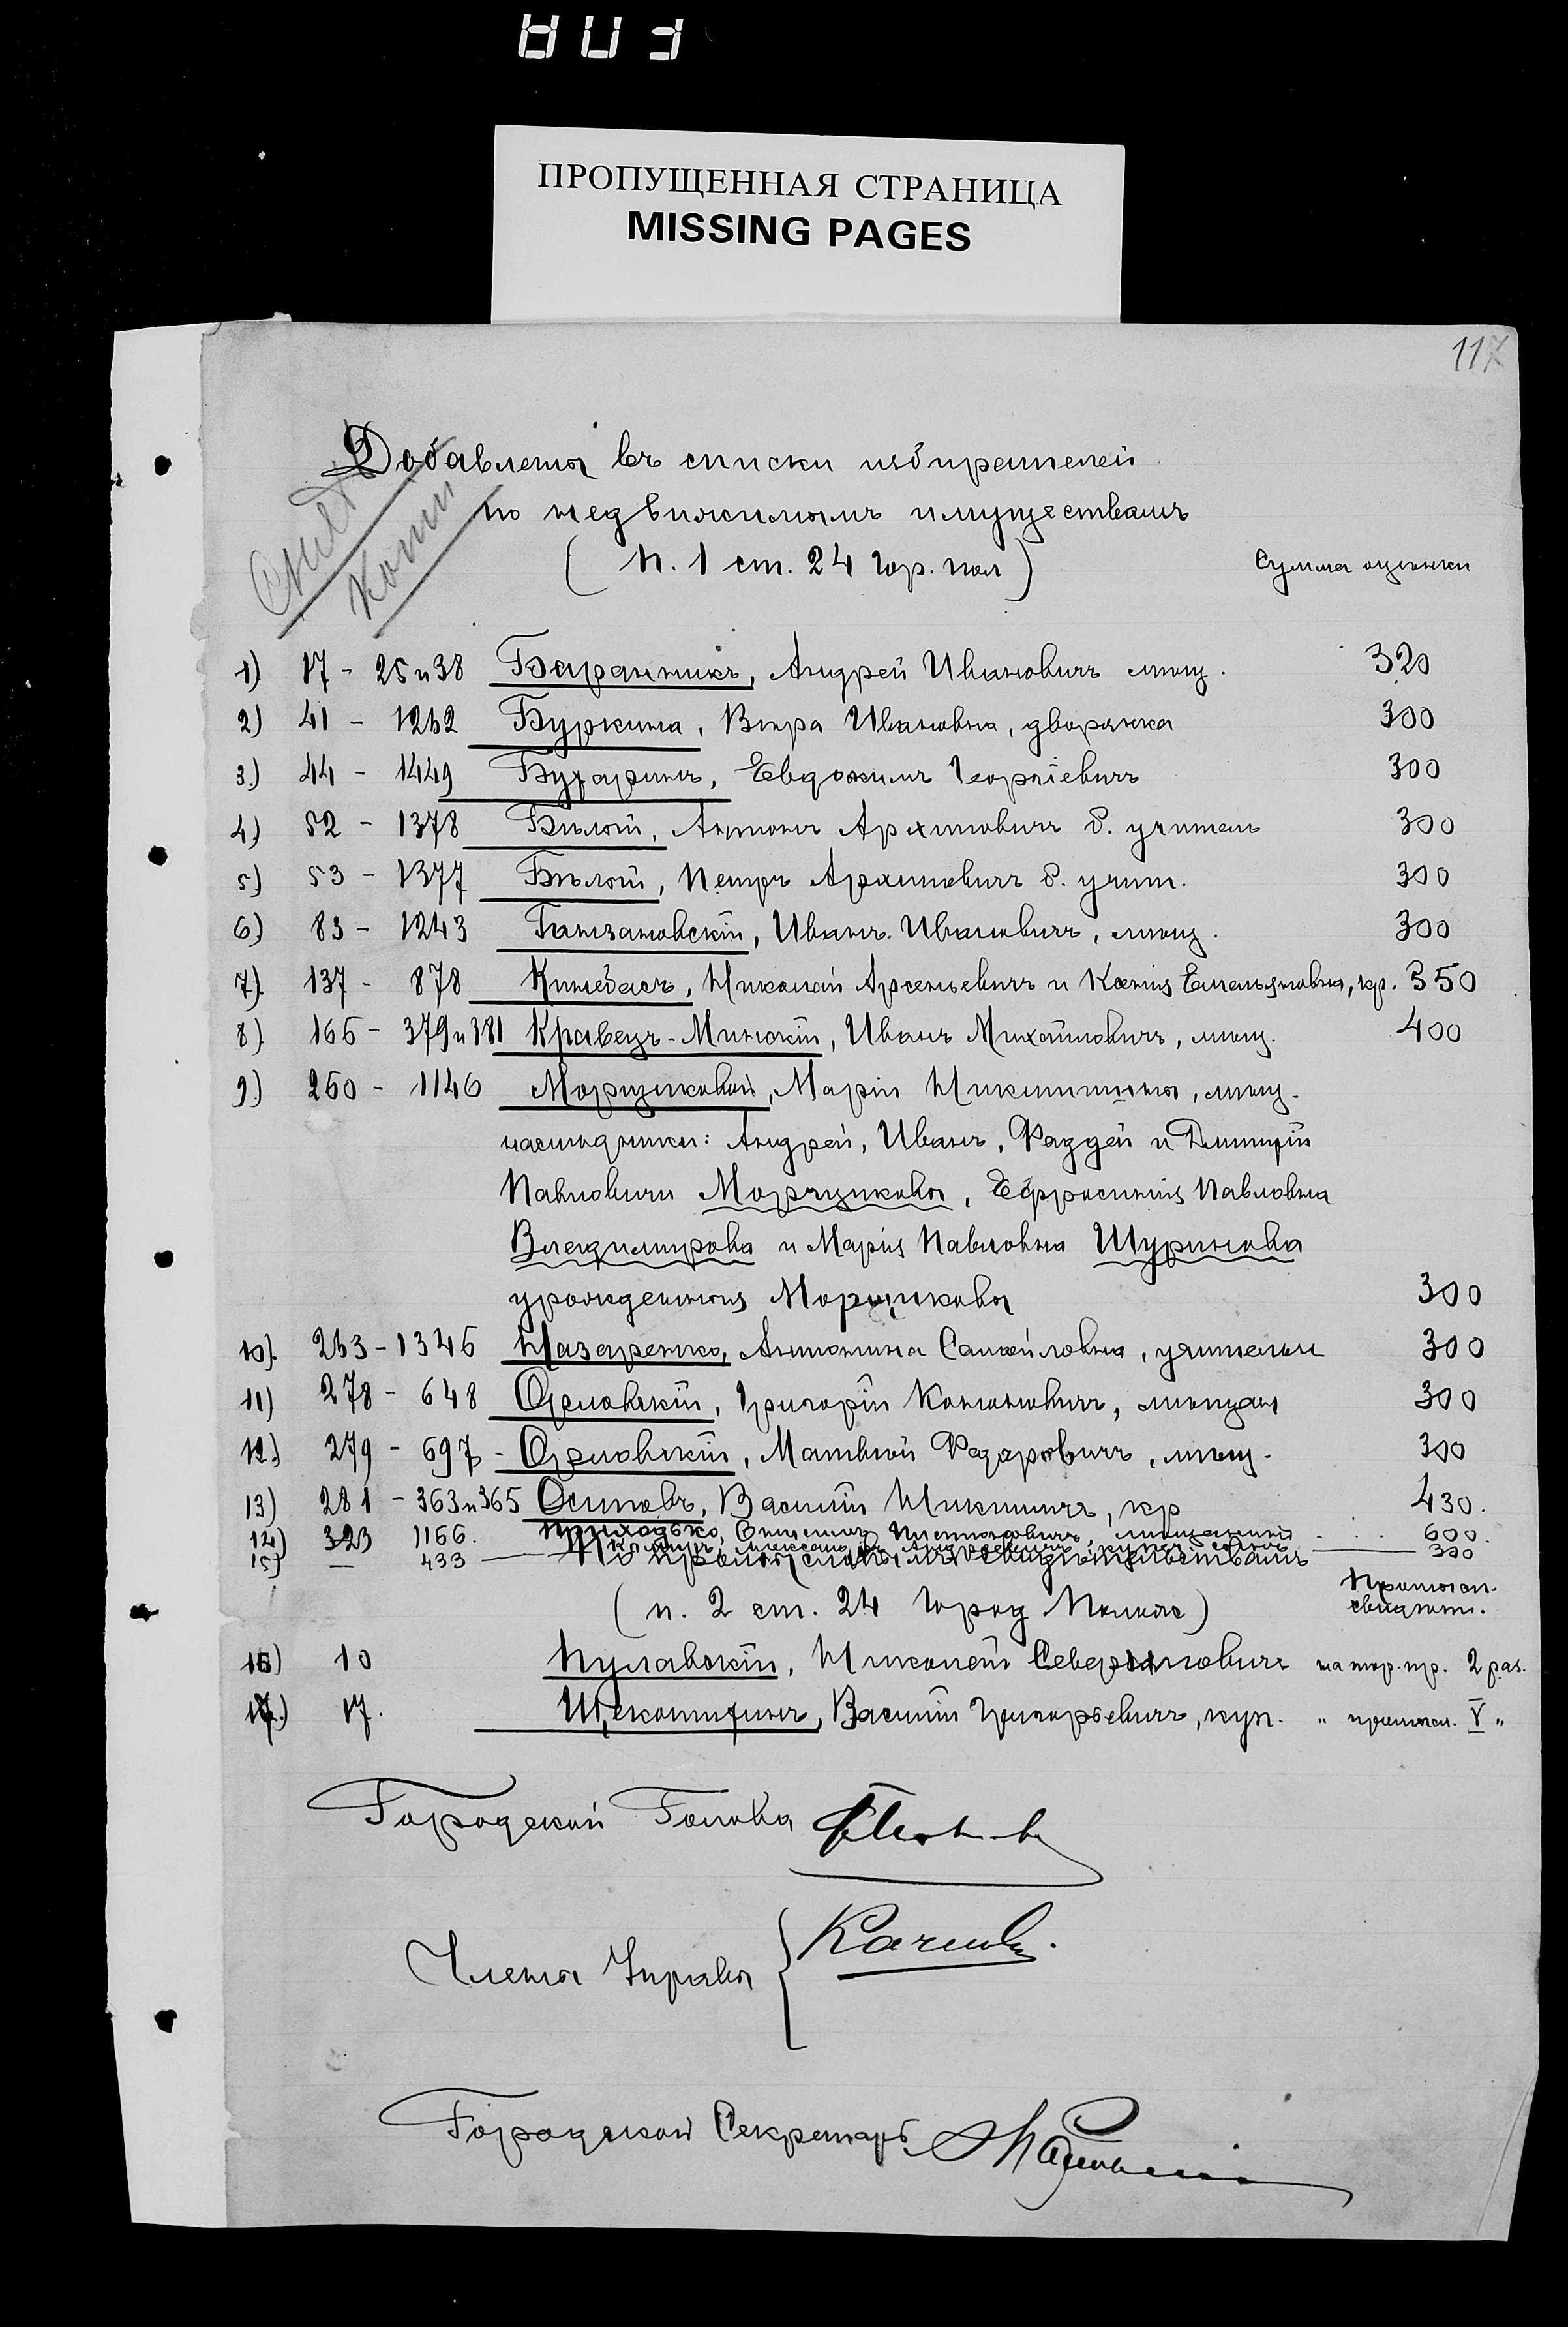 ПРОПУЩЕННАЯ СТРАНИЦА
MISSING PAGES
117
Добавлены въ списки избирателей
по недвижимымъ имуществамъ
( п. 1 ст. 24 Гор. пол )
Сумма оцѣнки
Копии
1) 17 - 25 и 38 Баранникъ, Андрей Ивановичъ мѣщ. 320
2) 41 - 1262 Буркина, Вѣра Ивановна, дворянка 300
3.) 44 - 1449 Бухаринъ, Евдокимъ Георгіевичъ 300
4.) 52 - 1378 Бѣлой, Антонъ Архиповичъ б. учитель 300
5) 53 - 1377 Бѣлой, Петръ Архиповичъ б. учит. 300
6.) 83 - 1243 Ганзановскій, Иванъ Ивановичъ, мѣщ. 300
7). 137 - 878 Кинебасъ, Николай Арсеньевичъ и Ксенія Емельяновна, кр. 350
8). 166 - 379 и 381 Кравецъ-Минскій, Иванъ Михайловичъ, мѣщ. 400
9.) 260 - 1146 Морщиковой, Маріи Никитишны, мѣщ.
наслѣдники: Андрей, Иванъ, Фаддей и Дмитрій
Павловичи Морщиковы, Ефросинія Павловна
Владимирова и Марія Павловна Шуринова
урожденныя Морщиковы 300
10). 263 - 1346 Назаренко, Антонина Самойловна, учительн 300
11) 278 - 648 Орловскій, Григорій Кононовичъ, мѣщан 300
12.) 279 - 697 - Орловскій, Матвѣй Федоровичъ, мѣщ. 300
13) 281 - 363 и 365 Осиповъ, Василій Никитичъ, кр 430.
14) 323 1166. Приходько, мѣщанинъ 600.
15) — 433 300
По промысловымъ свидѣтельствамъ
( п. 2 ст. 24 Город Полож ) Промысл.
свидѣт.
16) 10 Пулавскій, Николай Севериновичъ на тор. пр. 2 раз.
17.) 17. Щекотихинъ, Василій Григорьевичъ, куп. " промысл. V "
Городской Голова
Члены Управы
Городской Секретарь